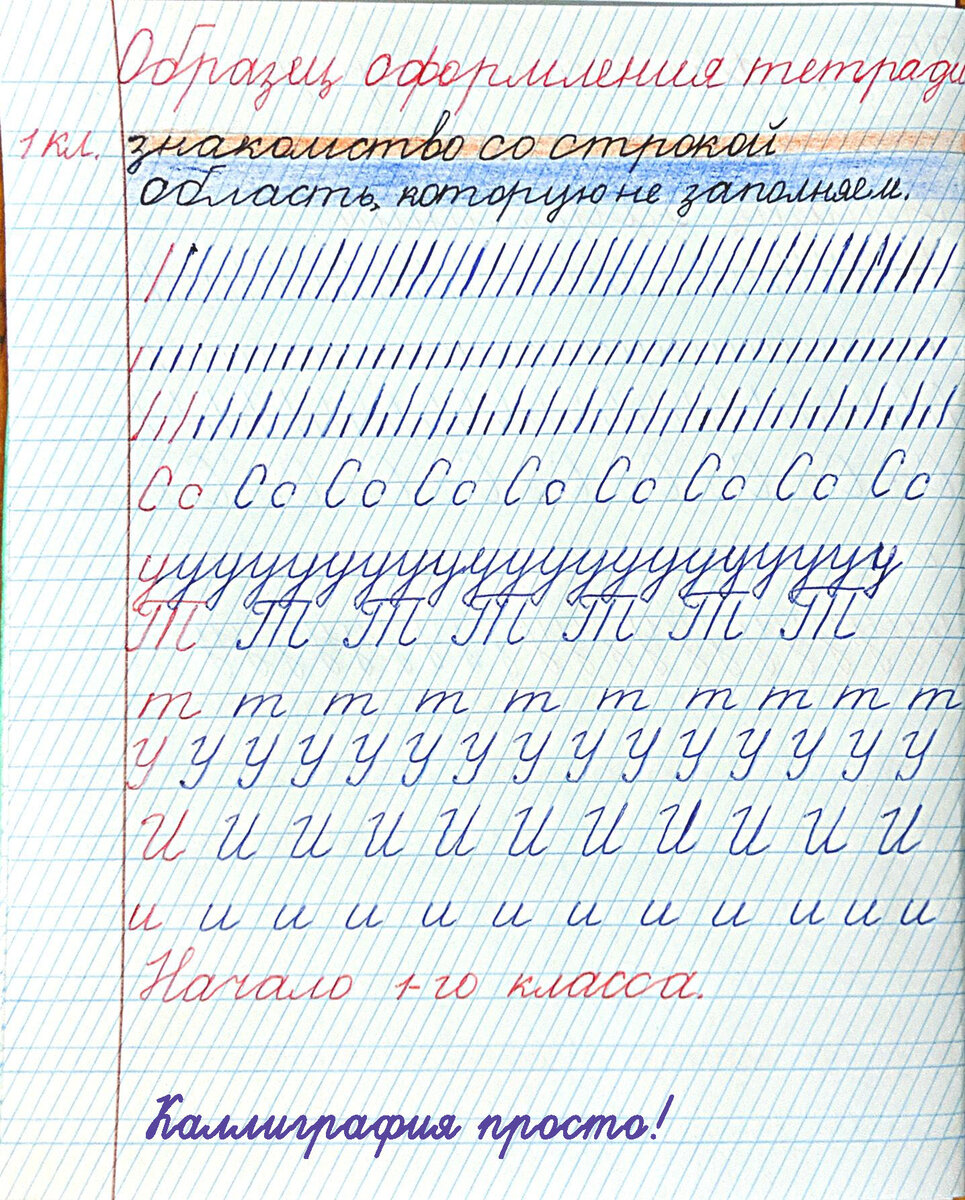 Образец оформления тетради
1 кл. знакомство со строкой
область, которую не заполняем.
Сс Сс Сс Сс Сс Сс Сс Сс Сс
у у у у у у у у у у у у у у у у у у у у у
Т Т Т Т Т Т Т
т т т т т т т т т т
У У У У У У У У У У У У У У
И И И И И И И И И И И
и и и и и и и и и и и и
Начало 1-го класса.
Каллиграфия просто!